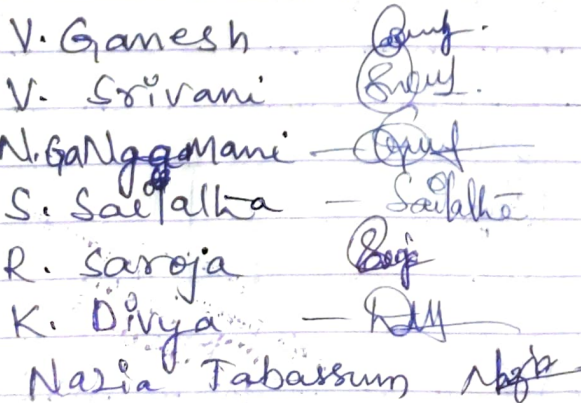 V. Ganesh
V. Srivani
N. GaNgaMani -
S. Sailatha - Sailatha
R. Saroja
K. Divya -
Nazia Tabassum Nazia